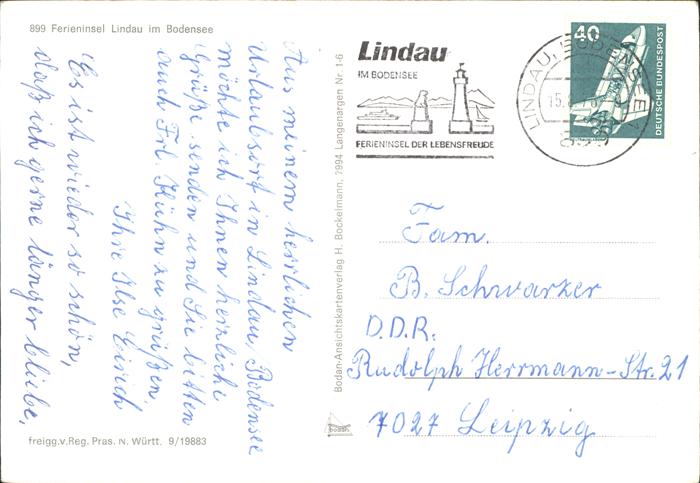 899 Ferieninsel Lindau im Bodensee
Aus meinem herrlichen
Urlaubsort in Lindau, Bodensee
möchte ich Ihnen herzliche
Grüße senden und Sie bitten
auch Frl. Kühn zu grüßen
Ihre Ilse Eirich
Es ist wieder so schön,
daß ich gerne länger bliebe.
freigg.v.Reg. Pras. N. Württ. 9/19883
Bodan-Ansichtskartenverlag H. Bockelmann, 7994 Langenargen Nr. 1-6
Lindau
IM BODENSEE
FERIENINSEL DER LEBENSFREUDE
LINDAU, BODENSEE 1
15.
8990
40
DEUTSCHE BUNDESPOST
Fam.
B. Schwarzer
D.D.R.
Rudolph Herrmann-Str. 21
7027 Leipzig